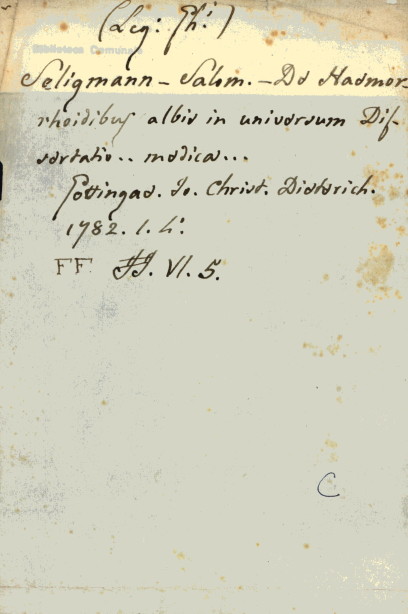 (Leg: Ph:)
Biblioteca Comunale
Seligmann - Salom. - De Haemor-
rhoidibus albis in universum Dis-
sertatio.. medica...
Gottingae. Io. Christ. Dieterich.
1782. 1. 4.°
FF FF. VI. 5.
C